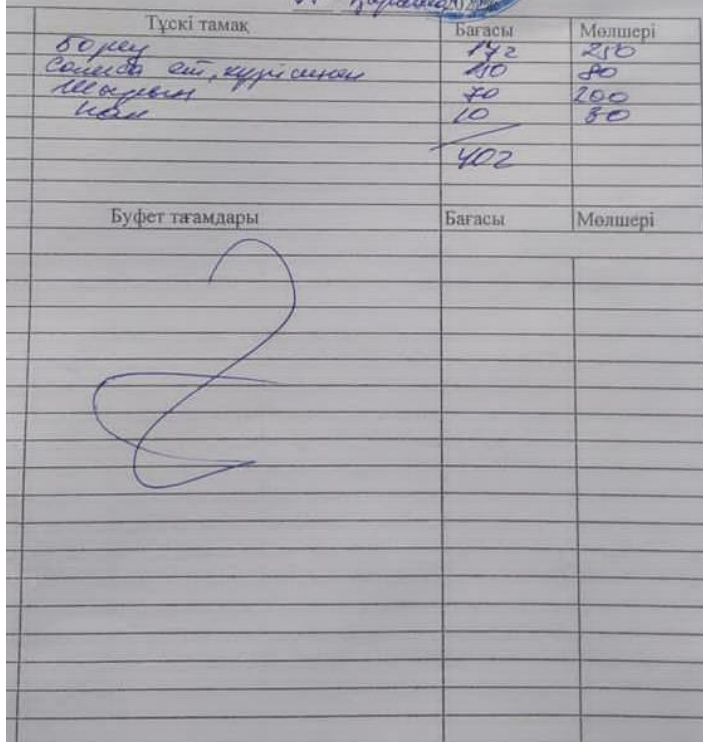 Түскі тамақ Бағасы Мөлшері
Борщ 172 250
ет, күрішпен 150 80
Шырын 70 200
Нан 10 30
402
Буфет тағамдары Бағасы Мөлшері